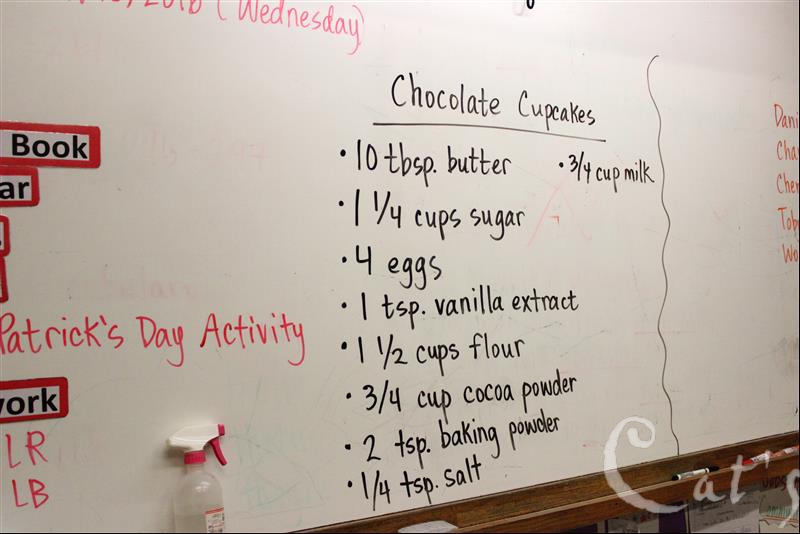 2016 (Wednesday)
Book
ar
Patrick's Day Activity
work
LR
LB
Chocolate Cupcakes
• 10 tbsp. butter
• 1 1/4 cups sugar
• 4 eggs
• 1 tsp. vanilla extract
• 1 1/2 cups flour
• 3/4 cup cocoa powder
• 2 tsp. baking powder
• 1/4 tsp. salt
• 3/4 cup milk
Dani
Char
Cher
Toby
Wo
Cat's